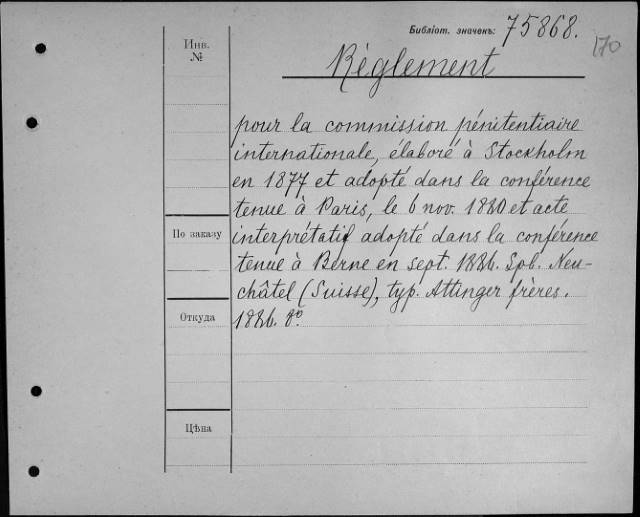 Библіот. значекъ: 75868.
170
Инв.
№
Règlement
pour la commission pénitentiaire
internationale, élaboré à Stockholm
en 1877 et adopté dans la conférence
tenue à Paris, le 6 nov. 1880 et acte
По заказу
interprétatif adopté dans la conférence
tenue à Berne en sept. 1886. Spb. Neu-
châtel (Suisse), typ. Attinger frères.
Откуда
1886. 8º.
Цѣна